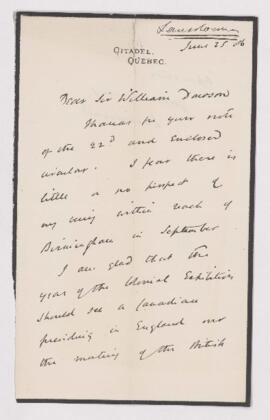 Lansdowne
June 25. 86
CITADEL,
QUEBEC.
Dear Sir William Dawson
Thanks for your note
of the 22d and enclosed
circular. I fear there is
little or no prospect of
my being within reach of
Birmingham in September
I am glad that the
year of the Colonial Exhibition
should see a Canadian
presiding in England over
the meeting of the British